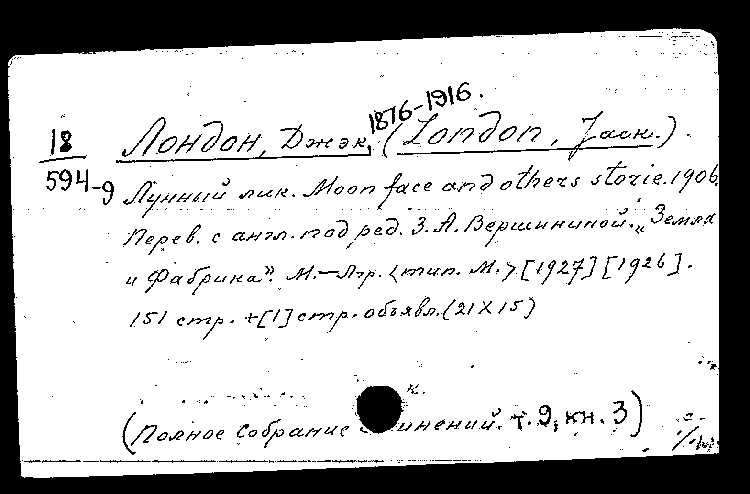 1876-1916.
18 Лондон, Джэк, (London, Jack.).
594-9 Лунный лик. Moon face and others storie. 1906.
Перев. с англ. под ред. З. А. Вершининой. „Земля
и Фабрика". М.-Лгр. <тип. М.> [1927] [1926].
151 стр. + [1] стр. объявл. (21X15)
к.
(Полное собрание инений. т. 9, кн. 3)